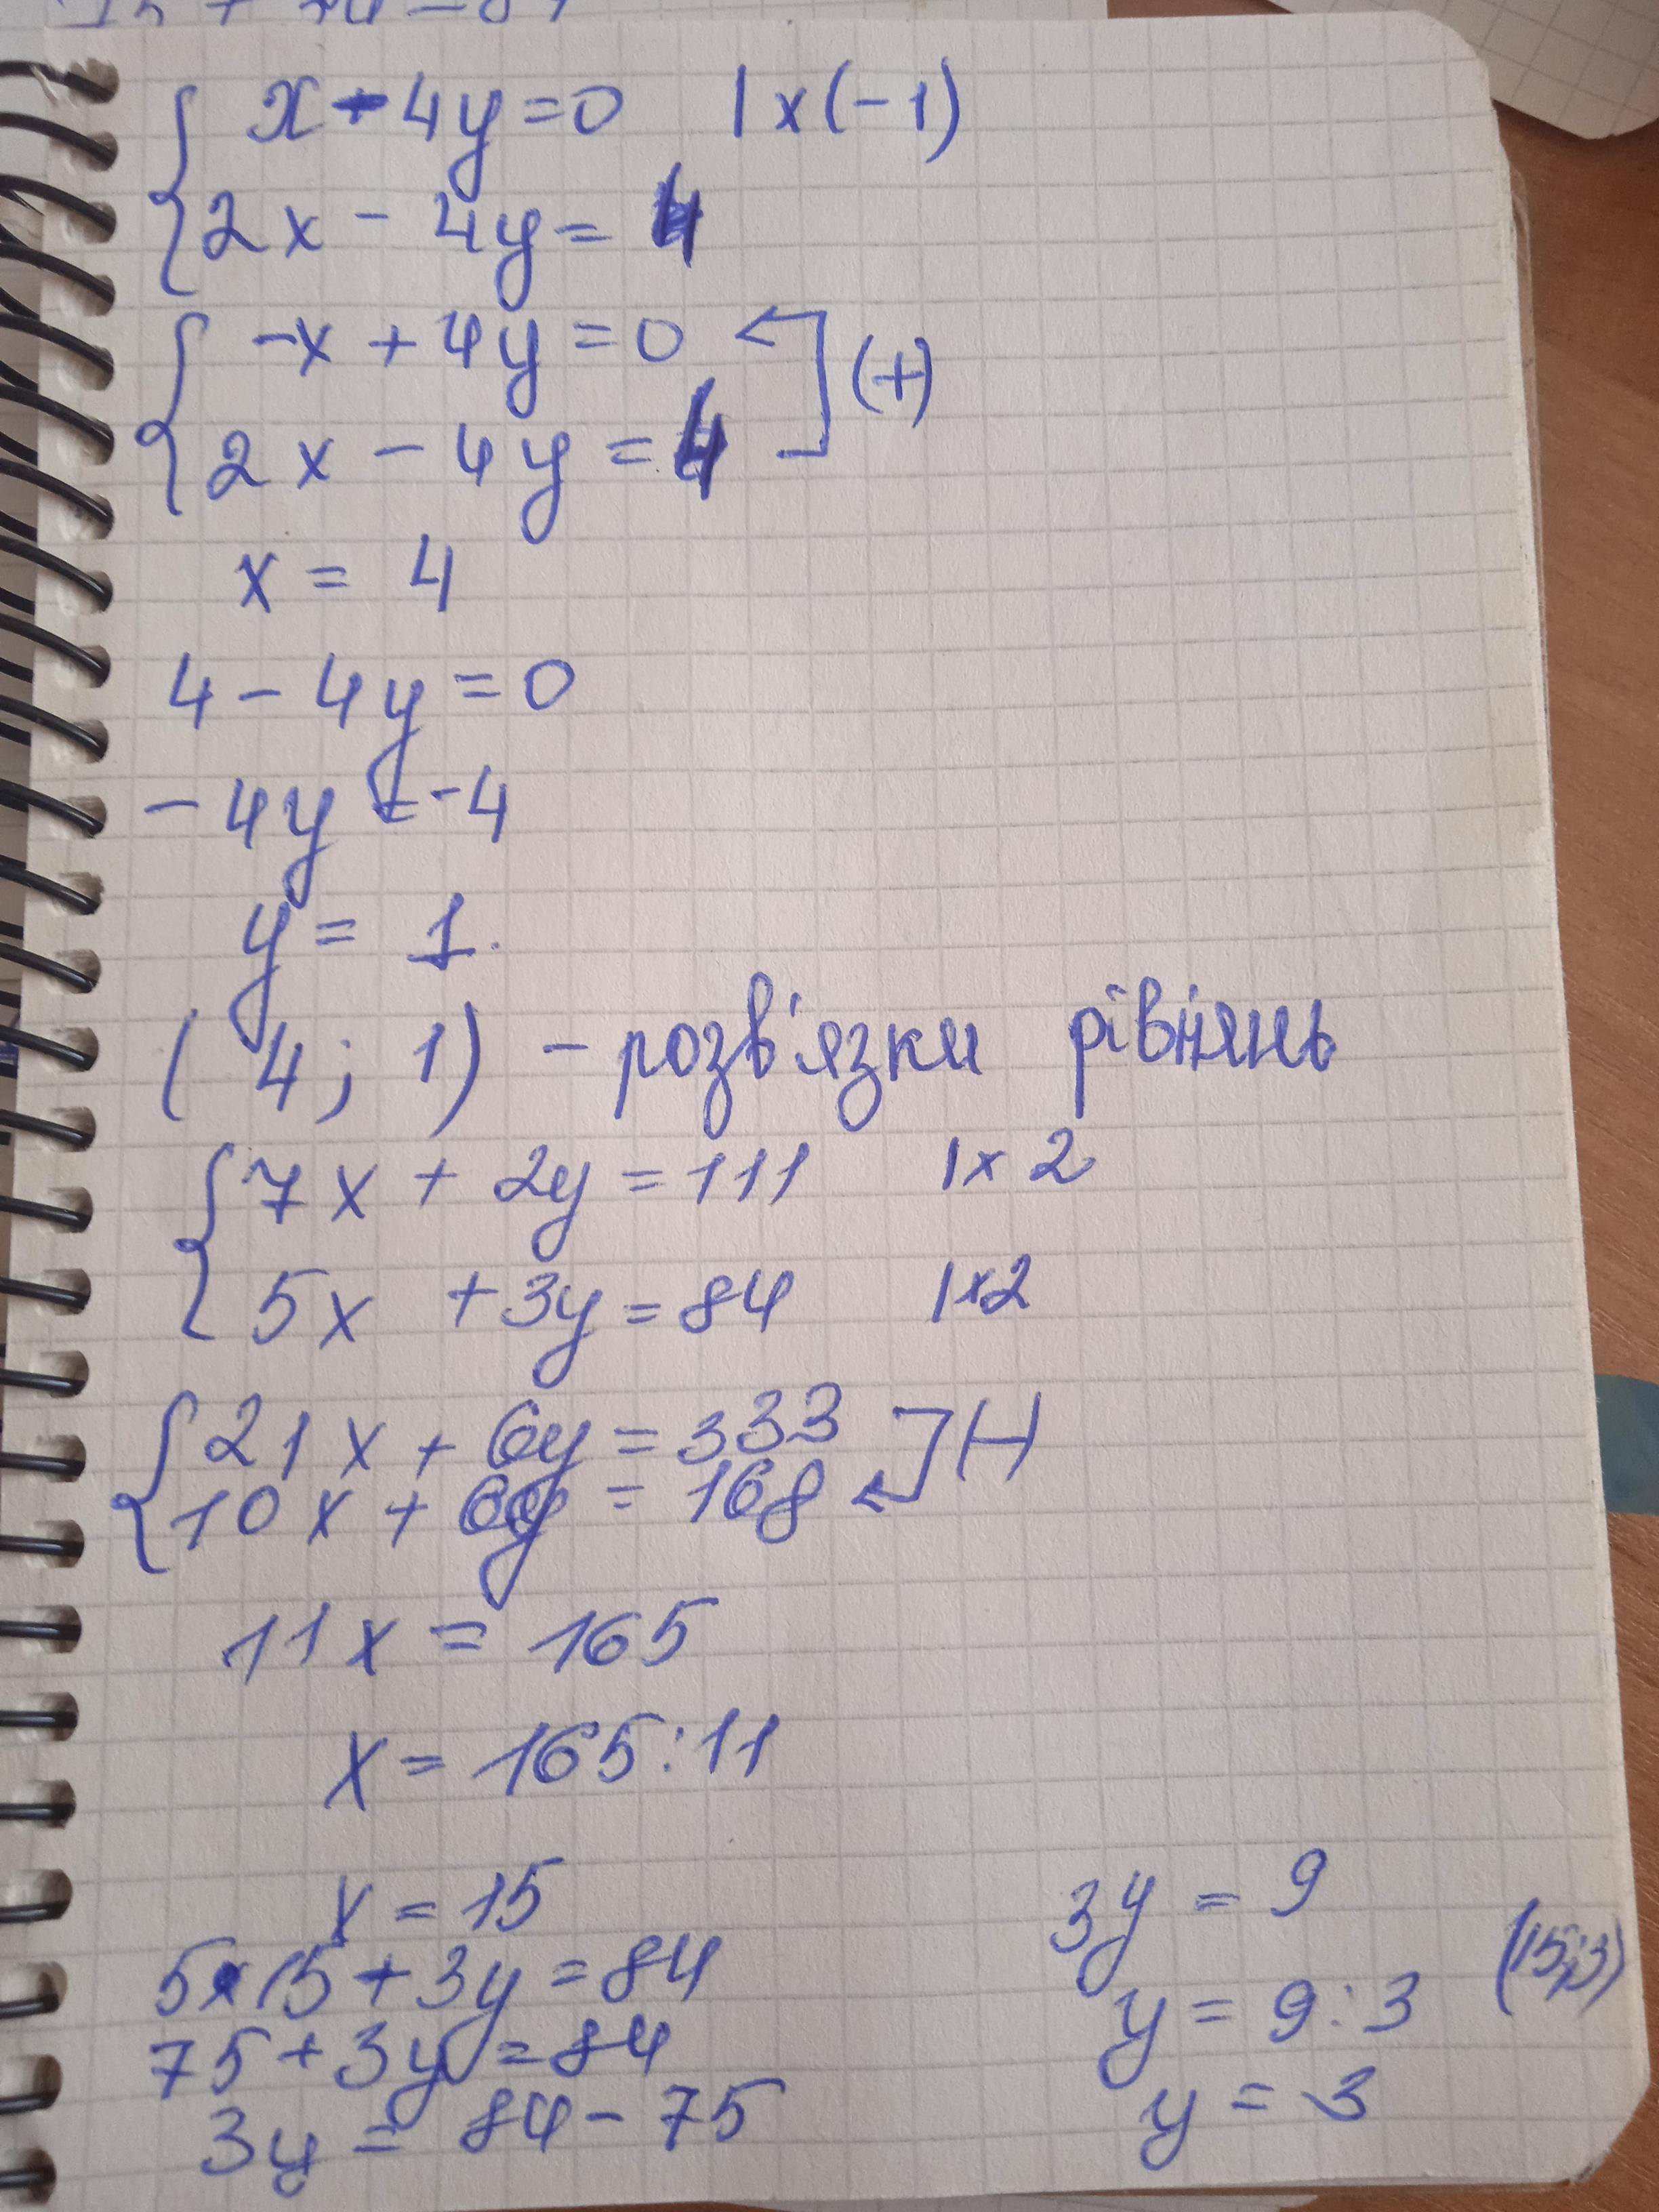 x - 4y = 0 | x (-1)
2x - 4y = 4
-x + 4y = 0
2x - 4y = 4 (+)
x = 4
4 - 4y = 0
-4y = -4
y = 1.
(4; 1) - розв'язки рівнянь
7x + 2y = 111 | x 2
5x + 3y = 84 | x 2
21x + 6y = 333
10x + 6y = 168 (-)
11x = 165
x = 165 : 11
x = 15
5 x 15 + 3y = 84
75 + 3y = 84
3y = 84 - 75
3y = 9
y = 9 : 3
y = 3
(15; 3)